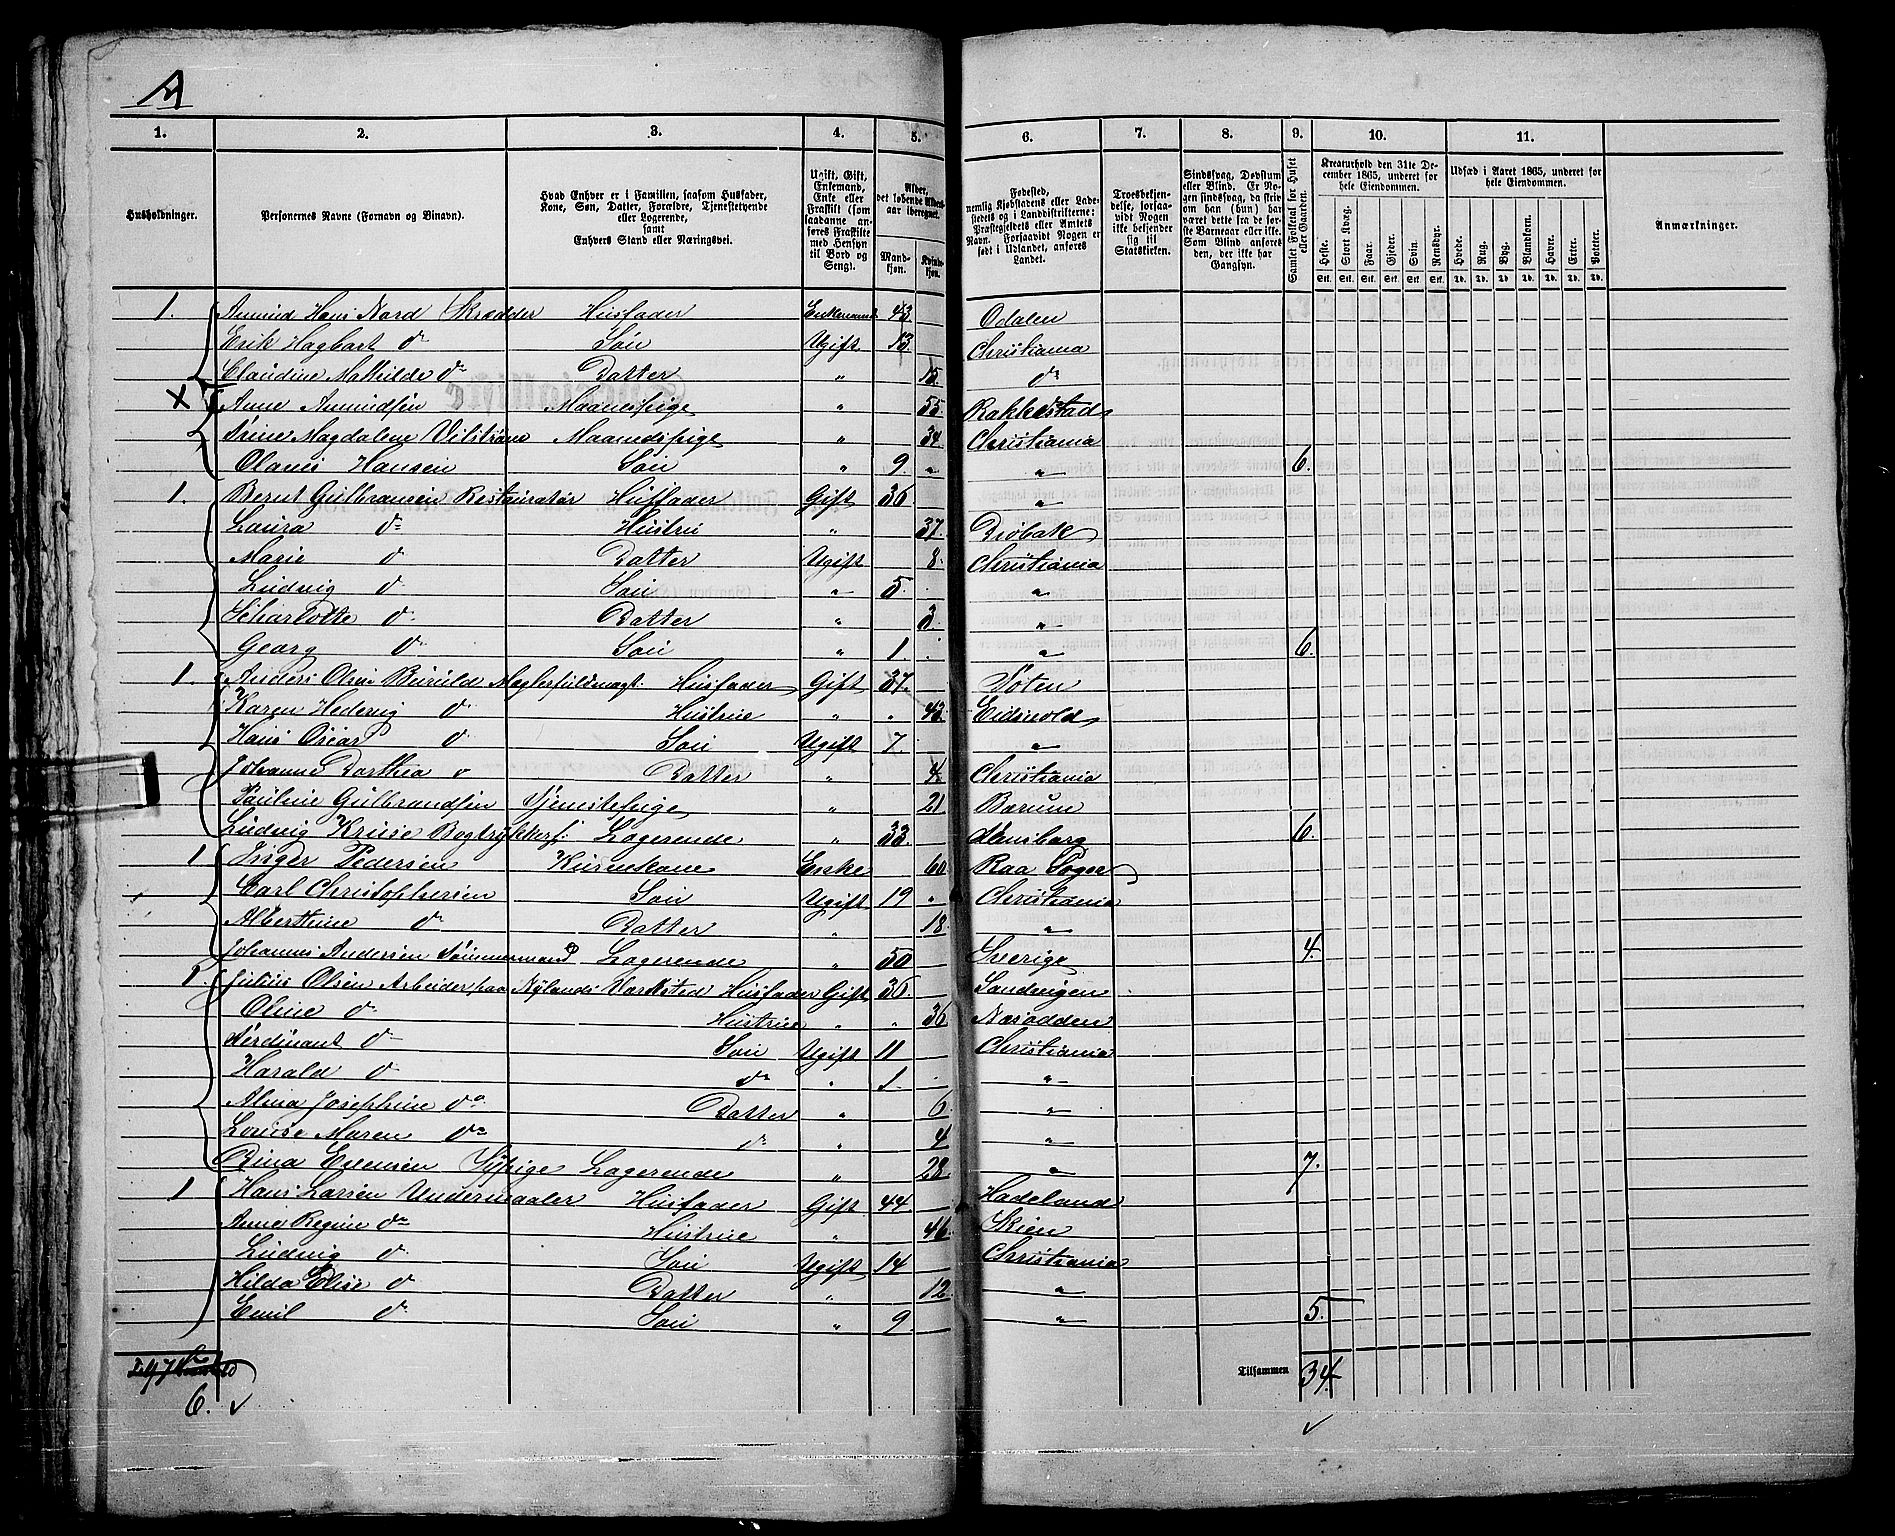 A
1. 2. 3. 4. 5. 6. 7. 8. 9. 10. 11.
Husholdninger.
Personernes Navne (Fornavn og Binavn).
Hvad Enhver er i Familien, saasom Husfader,
Kone, Søn, Datter, Forældre, Tjenestetyende
eller Logerende,
samt
Enhvers Stand eller Næringsvei.
Ugift, Gift,
Enkemand,
Enke eller
Fraskilt (som
saadanne an-
føres Fraskilte
med Hensyn
til Bord og
Seng).
Alder,
det løbende Alders-
aar iberegnet.
Mand-
kjøn.
Kvinde-
kjøn.
Fødested,
nemlig Kjøbstadens eller Lade-
stedets og i Landdistrikterne:
Præstegjeldets eller Amtets
Navn. Forsaavidt Nogen er
født i Udlandet, anføres
Landet.
Troesbekjen-
delse, forsaa-
vidt Nogen
ikke bekjender
sig til
Statskirken.
Sindssvag, Døvstum
eller Blind. Er No-
gen sindssvag, da skriv
om han (hun) har
været dette fra de før-
ste Barneaar eller ikke.
Som Blind anføres
den, der ikke har
Gangsyn.
Samlet Folketal for Huset
eller Gaarden.
Kreaturhold den 31te De-
cember 1865, underet for
hele Eiendommen.
Heste. Stort Kvæg. Faar. Gjeder. Svin. Rensdyr.
Stk. Stk. Stk. Stk. Stk. Stk.
Udsæd i Aaret 1865, underet for
hele Eiendommen.
Hvede. Rug. Byg. Blandkorn. Havre. Erter. Poteter.
Td. Td. Td. Td. Td. Td. Td.
Anmærkninger.
1. Amund Hans Nord Skrædder Husfader Enkemand 43 Odalen
Erik Hagbart do Søn Ugift 13 Christiania
Claudine Mathilde do Datter " 15 do
X Anne Amundsen " 55 Rakkestad
Trine Magdalene " 34 Christiania
Olaves Hansen Søn " 9 " " 6.
1. Bernt Gulbransen Restauratør Husfader Gift 36 "
Laura do Hustru " 37 Drøbak
Marie do Datter Ugift 8 Christiania
Ludvig do Søn " 5 "
Scharlotte do Datter " 3 "
Georg do Søn " 1 " 6.
1. Anders Olsen Husfader Gift 37 Toten
Karen Hedevig do Hustrue " " 43 Eidsvold
Hans Oscar do Søn Ugift 7 "
Johanne Dorthea do Datter " 4 Christiania
Pauline Gulbrandsen Tjenestepige " 21 Bærum
Ludvig Kruse Bogtrykkersv: Logerende " 33 6.
1 Inger Pedersen Enke 60 Raa Sogn
Carl Christophersen Søn Ugift 19 " Christiania
Alberthine do Datter " 18 "
Johannes Andersen Tømmermand Logerende " 50 Sverige 4.
1. Julius Olsen Arbeider paa Nylands Værksted Husfader Gift 36 Sandvigen
Oline do Hustrue " " 36 Næsodden
Ferdinant do Søn Ugift 11 Christiania
Harald do do " 1 "
Alma Josephine do Datter " 6 "
Louise Maren do do " 4 "
Dina Evensen Sypige Logerende " 28 " 7.
1 Hans Larsen Husfader Gift 44 Hadeland
Anne Regine do Hustrue " 46 Skien
Ludvig do Søn Ugift 14 Christiania
Hilda Elise do Datter " 12 "
Emil do Søn " 9 " 5.
Tilsammen 34
6.